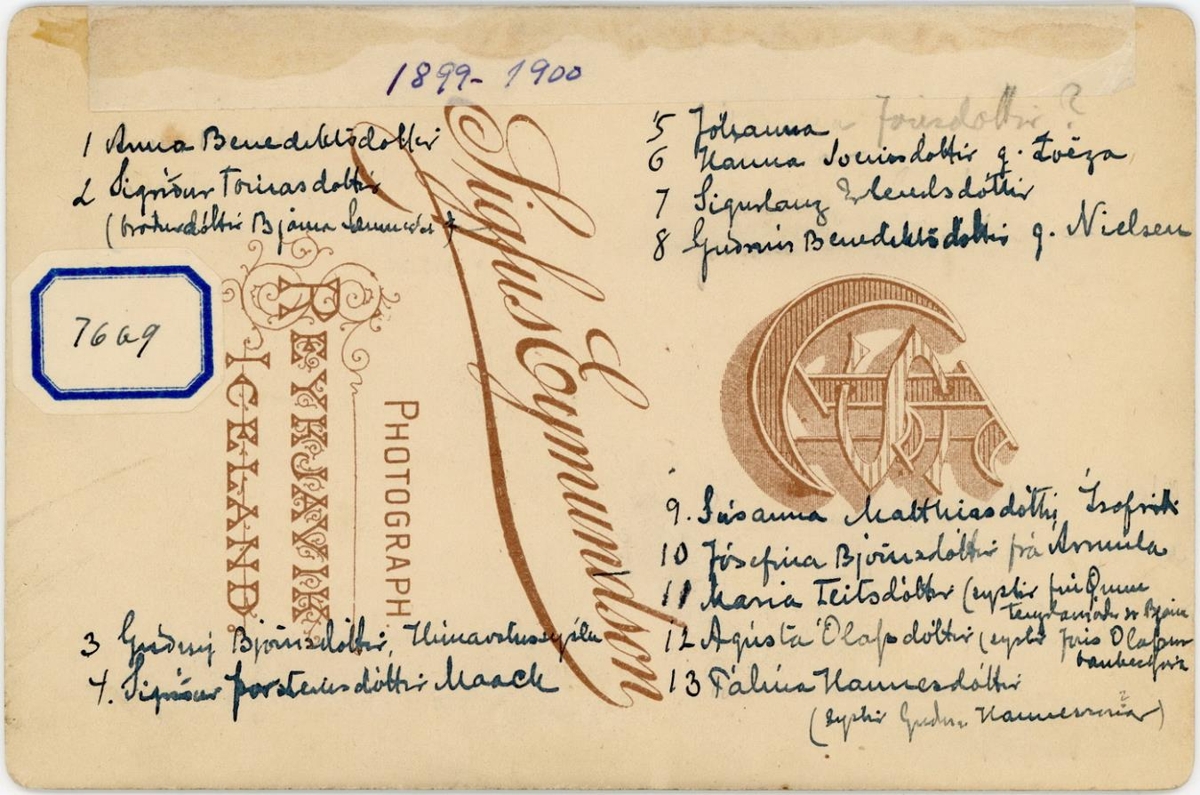 1899-1900
1 Anna Benediktsdóttir
2 Sigríður Tómasdóttir
(bróðurdóttir Bjarna
3 Björnsdóttir, Húnavatnssýslu
4. Sigríður Þorsteinsdóttir Maack
5 Jóhanna Jónsdóttir ?
6 Hanna g. Zoëga
7 Sigurlaug Erlendsdóttir
8 Guðrún Benediktsdóttir g. Nielsen
7669
Sigfús Eymundsson
PHOTOGRAPH.
REYKJAVIK
ICELAND.
9. Súsanna Matthiasdóttir, Ísafirði
10 Jósefína Björnsdóttir frá Ármúla
11 María Teitsdóttir (systir frú
tengdamóður Björns
12 Ágústa Ólafsdóttir (systir Jóns Ólafssonar
13 Pálína Hannesdóttir
(systir Hannessonar ?)